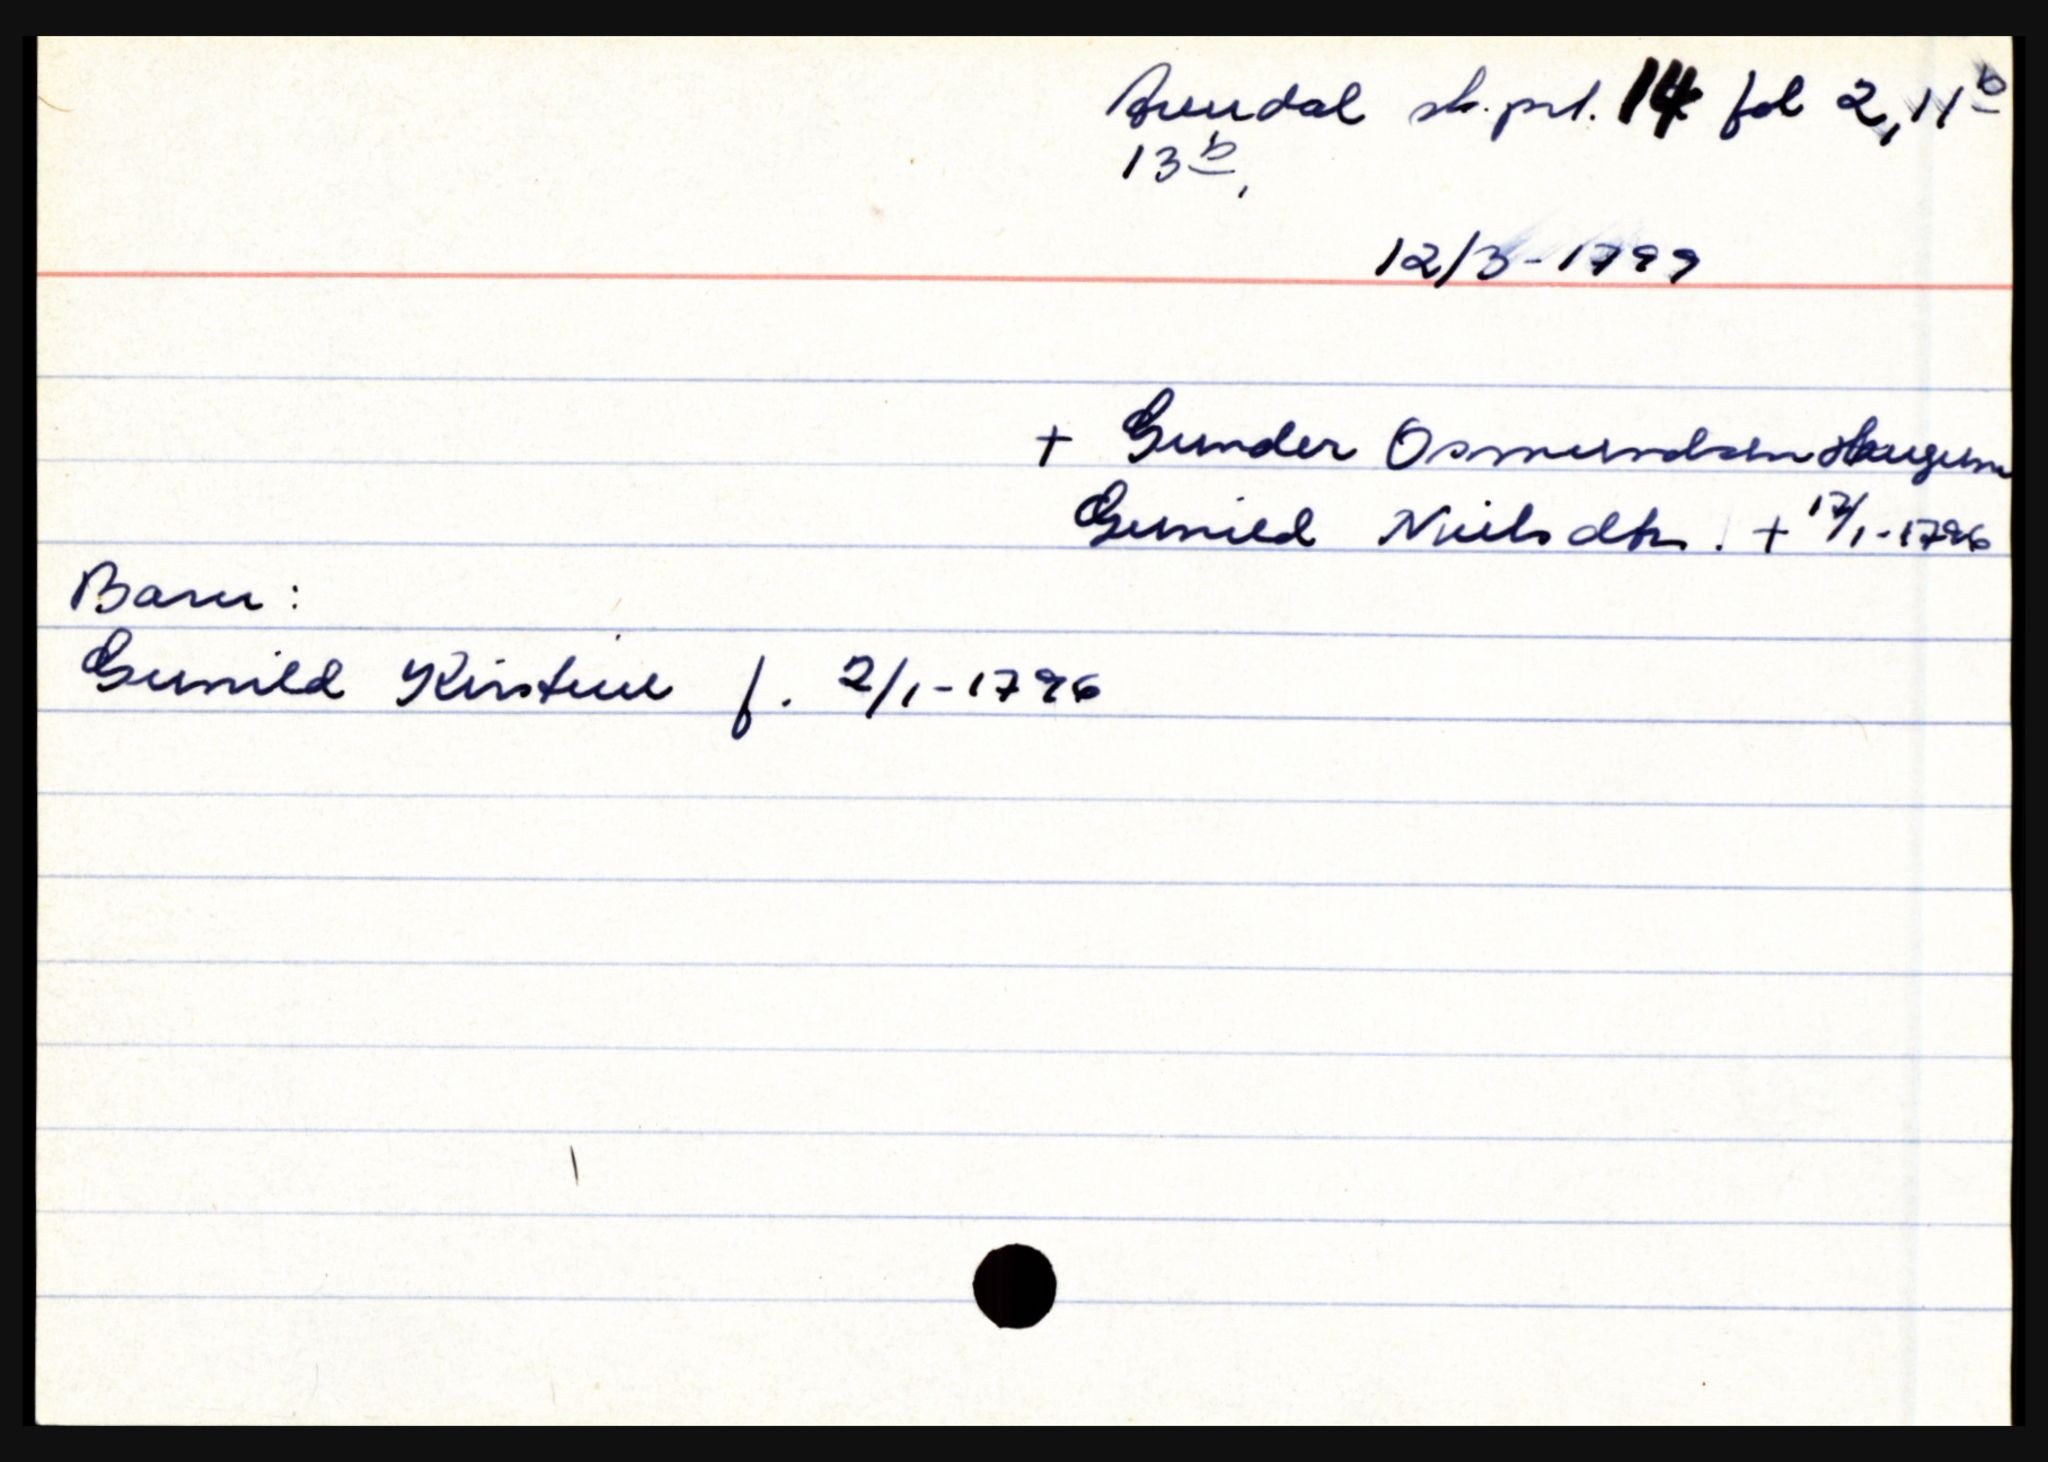 Arendal sk.prt. 14 fol 2, 11b
13b,
12/3-1799
+ Gunder Osmundsen Haugum
Gunild Nielsdtr. + 12/1-1796
Barn:
Gunild Kirstine f. 2/1-1796